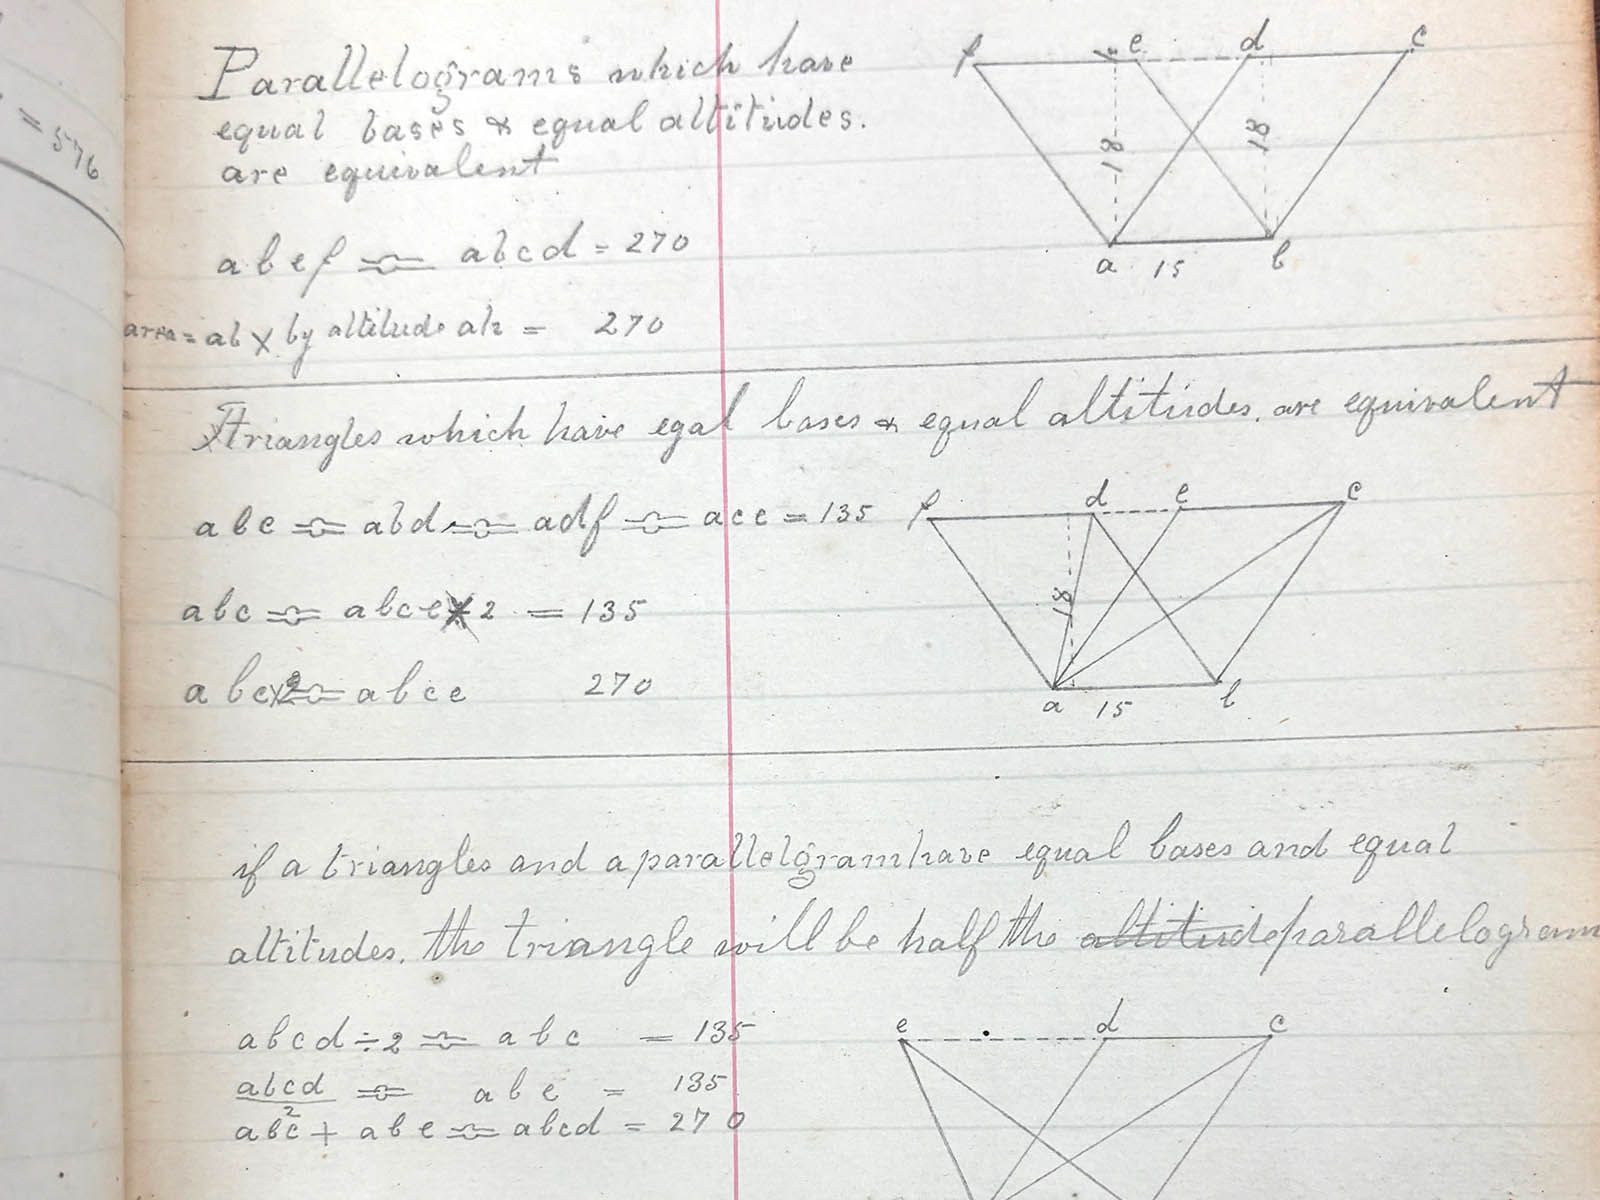 = 576
Parallelograms which have
equal bases & equal altitudes.
are equivalent
abef ≏ abcd = 270
area = ab × by altitude ah = 270
f h e d c
18 18
a 15 b
triangles which have egal bases & equal altitudes. are equivalent
abc ≏ abd ≏ adf ≏ ace = 135
abc ≏ abce 2 = 135
abc×2 ≏ abce 270
f d e c
18
a 15 b
if a triangles and a parallelgram have equal bases and equal
altitudes. the triangle will be half the altitude parallelogram
abcd ÷ 2 ≏ abc = 135
abcd ≏ abe = 135
2
abc + abe ≏ abcd = 270
e d c